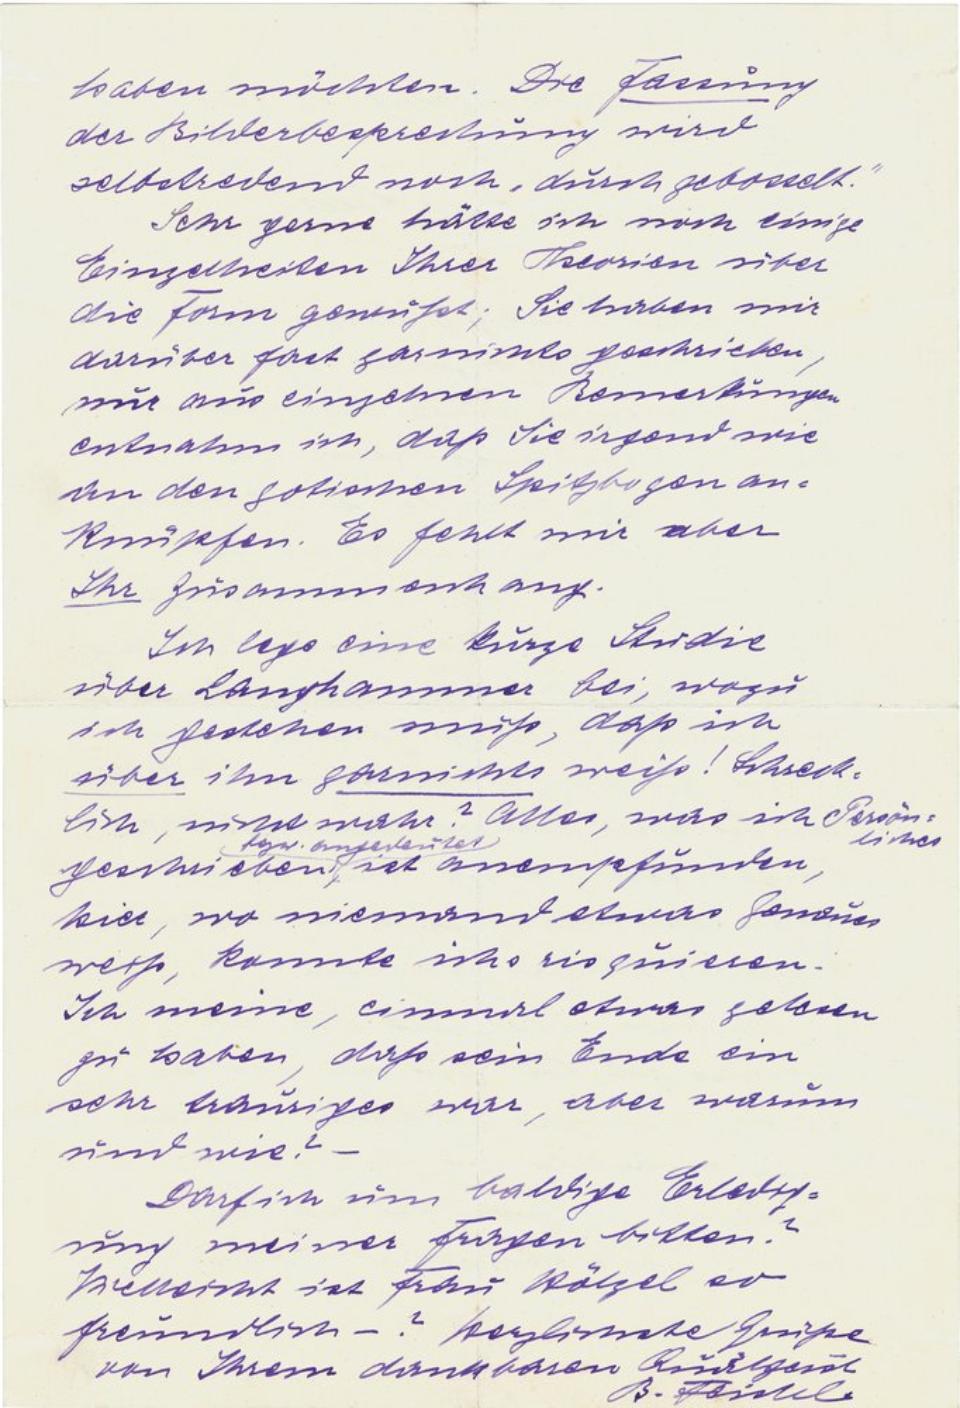 haben möchten. Die Fassung
der Bilderbesprechung wird
selbstredend noch „durchgebosselt."
Sehr gerne hätte ich noch einige
Einzelheiten Ihrer Theorien über
die Form gewußt; Sie haben mir
darüber fast garnichts geschrieben,
nur aus einzelnen Bemerkungen
entnahm ich, daß Sie irgendwie
an den gotischen Spitzbogen an=
knüpfen. Es fehlt mir aber
Ihr Zusammenhang.
Ich lege eine kurze Studie
über Langhammer bei, wozu
ich gestehen muß, daß ich
über ihn garnichts weiß! Schreck=
lich, nicht wahr? Alles, was ich Persön=
liches
bzw. angedeutet
geschrieben, ist anempfunden,
hier, wo niemand etwas Genaues
weiß, konnte ichs risquieren.
Ich meine, einmal etwas gelesen
zu haben, daß sein Ende ein
sehr trauriges war, aber warum
und wie? –
Darf ich um baldige Erledig=
ung meiner Fragen bitten?
Vielleicht ist Frau Hölzel so
freundlich – ? Herzlichste Grüße
von Ihrem dankbaren Quälgeist
B.